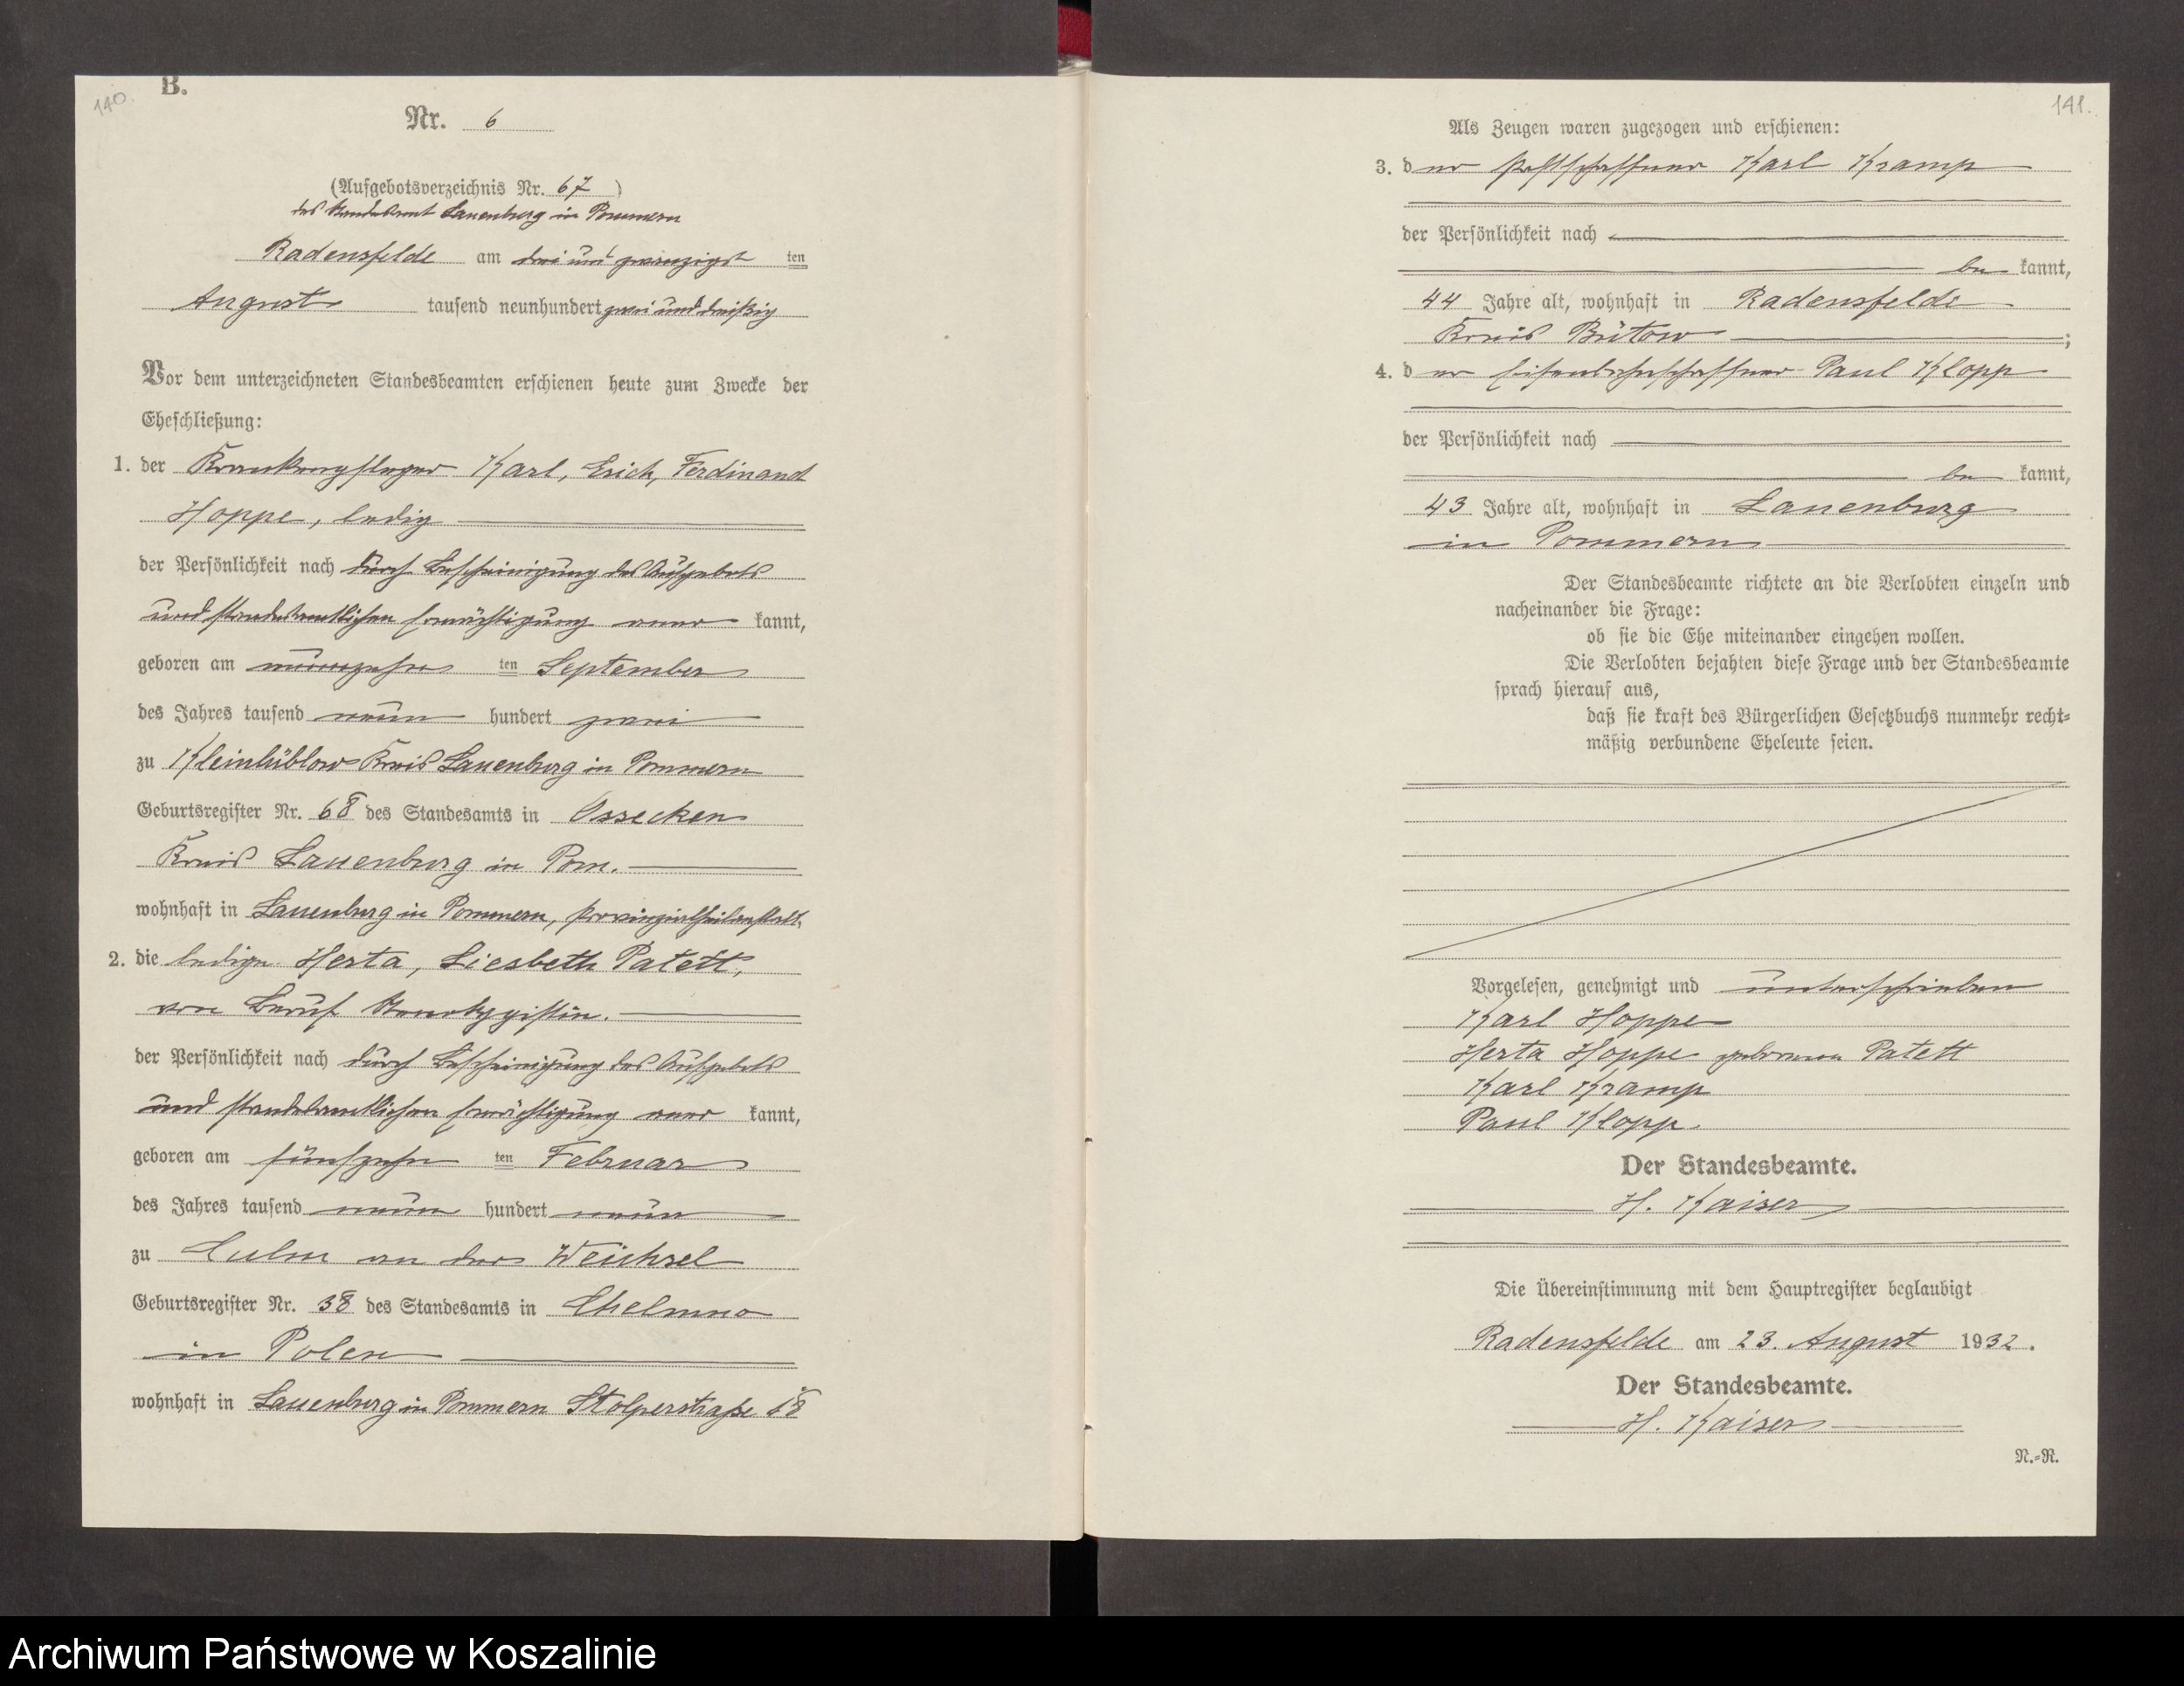 140.
B.
Nr. 6
(Aufgebotsverzeichnis Nr. 67)
des Standesamt Lauenburg in Pommern
Radensfelde am drei und zwanzigst ten
August tausend neunhundert zwei und dreißig
Vor dem unterzeichneten Standesbeamten erschienen heute zum Zwecke der
Eheschließung:
1. der Krankenpfleger Karl, Erich, Ferdinand
Hoppe, ledig
der Persönlichkeit nach durch Bescheinigung des Aufgebots
und standesamtlichen Ermächtigung aner kannt,
geboren am neunzehn ten September
des Jahres tausend neun hundert zwei
zu Kleinlüblow Kreis Lauenburg in Pommern
Geburtsregister Nr. 68 des Standesamts in Ossecken
Kreis Lauenburg in Pom.
wohnhaft in Lauenburg in Pommern, Provinzialheilanstalt.
2. die ledige Herta, Liesbeth Patett,
von Beruf Stenotypistin.
der Persönlichkeit nach durch Bescheinigung des Aufgebots
und standesamtlichen Ermächtigung aner kannt,
geboren am fünfzehn ten Februar
des Jahres tausend neun hundert neun
zu Culm an der Weichsel
Geburtsregister Nr. 38 des Standesamts in Chelmno
in Polen
wohnhaft in Lauenburg in Pommern Stolperstraße 18
141.
Als Zeugen waren zugezogen und erschienen:
3. d er Postschaffner Karl Kramp
der Persönlichkeit nach
be kannt,
44 Jahre alt, wohnhaft in Radensfelde
Kreis Bütow ;
4. d er Eisenbahnschaffner Paul Klopp
der Persönlichkeit nach
be kannt,
43 Jahre alt, wohnhaft in Lauenburg
in Pommern
Der Standesbeamte richtete an die Verlobten einzeln und
nacheinander die Frage:
ob sie die Ehe miteinander eingehen wollen.
Die Verlobten bejahten diese Frage und der Standesbeamte
sprach hierauf aus,
daß sie kraft des Bürgerlichen Gesetzbuchs nunmehr recht-
mäßig verbundene Eheleute seien.
Vorgelesen, genehmigt und unterschrieben
Karl Hoppe
Herta Hoppe geborenen Patett
Karl Kramp
Paul Klopp.
Der Standesbeamte.
H. Kaiser
Die Übereinstimmung mit dem Hauptregister beglaubigt
Radensfelde am 23. August 1932.
Der Standesbeamte.
H. Kaiser
N.-R.
Archiwum Państwowe w Koszalinie